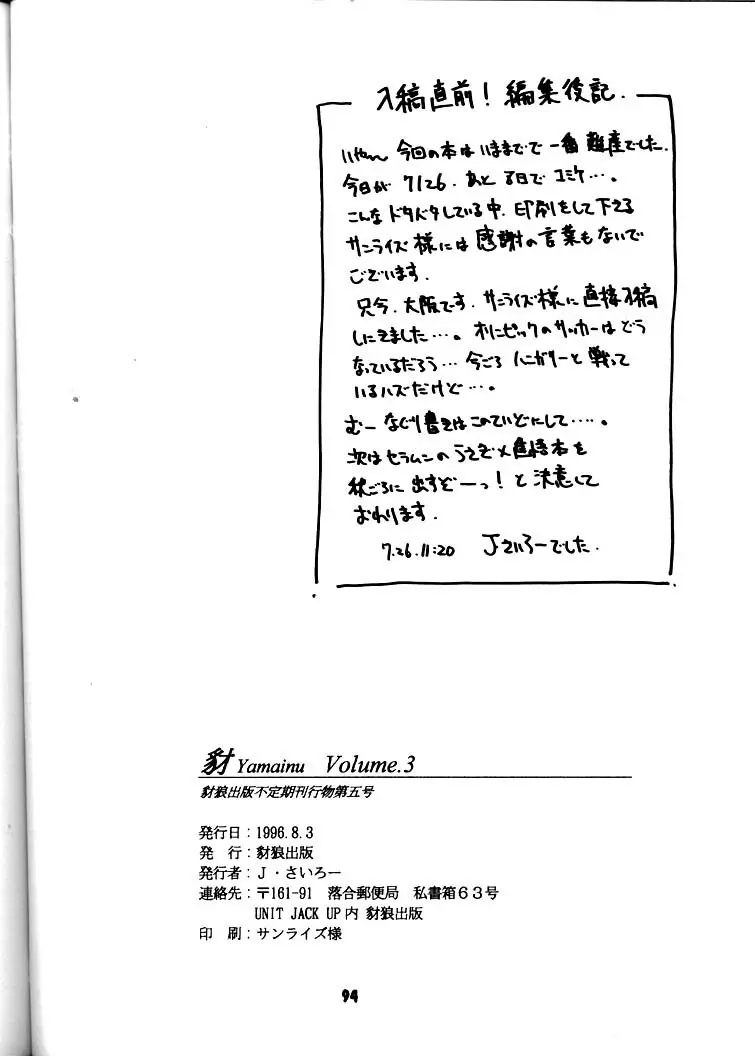 入稿直前！編集後記．
いやーん 今回の本はいままでで一番難産でした．
今日が 7/26．あと 8日で コミケ…。
こんな ドタバタしている中．印刷をして下さる
サンライズ 様には 感謝の言葉もないで
ございます．
只今．大阪です．サンライズ様に直接入稿
しにきました…。オリンピックのサッカーはどう
なっているだろう… 今ごろ ハンガリーと 戦って
いるハズだけど…。
むー なぐり書きはこのていどにして……。
次はセラムンのうさぎ×
本を
秋ごろに 出すぞーっ！と 決意して
おわります．
7.26.11:20 Jさいろーでした．
豺 Yamainu Volume.3
豺狼出版不定期刊行物第五号
発行日：1996.8.3
発　行：豺狼出版
発行者：Ｊ・さいろー
連絡先：〒161-91　落合郵便局　私書箱６３号
UNIT JACK UP内 豺狼出版
印　刷：サンライズ様
94